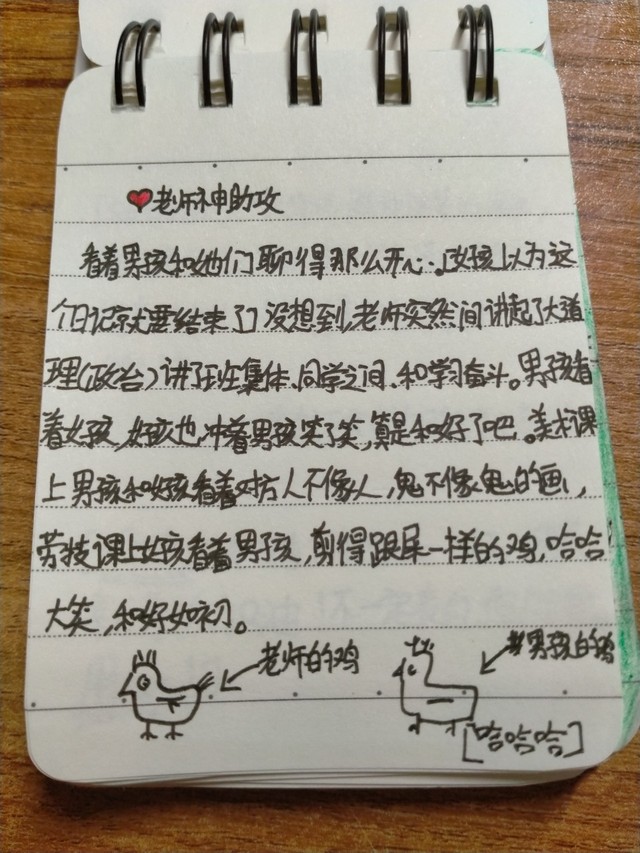 老师神助攻
看着男孩和她们聊得那么开心,女孩以为这
个日记就要结束了,没想到,老师突然间讲起了大道
理(政治)讲了班集体、同学之间、和学习奋斗。男孩看
着女孩,女孩也冲着男孩笑了笑,算是和好了吧。美术课
上男孩和女孩看着对方人不像人,鬼不像鬼的画,
劳技课上女孩看着男孩,剪得跟屎一样的鸡,哈哈
大笑,和好如初。
老师的鸡
男孩的鸡
[哈哈哈]